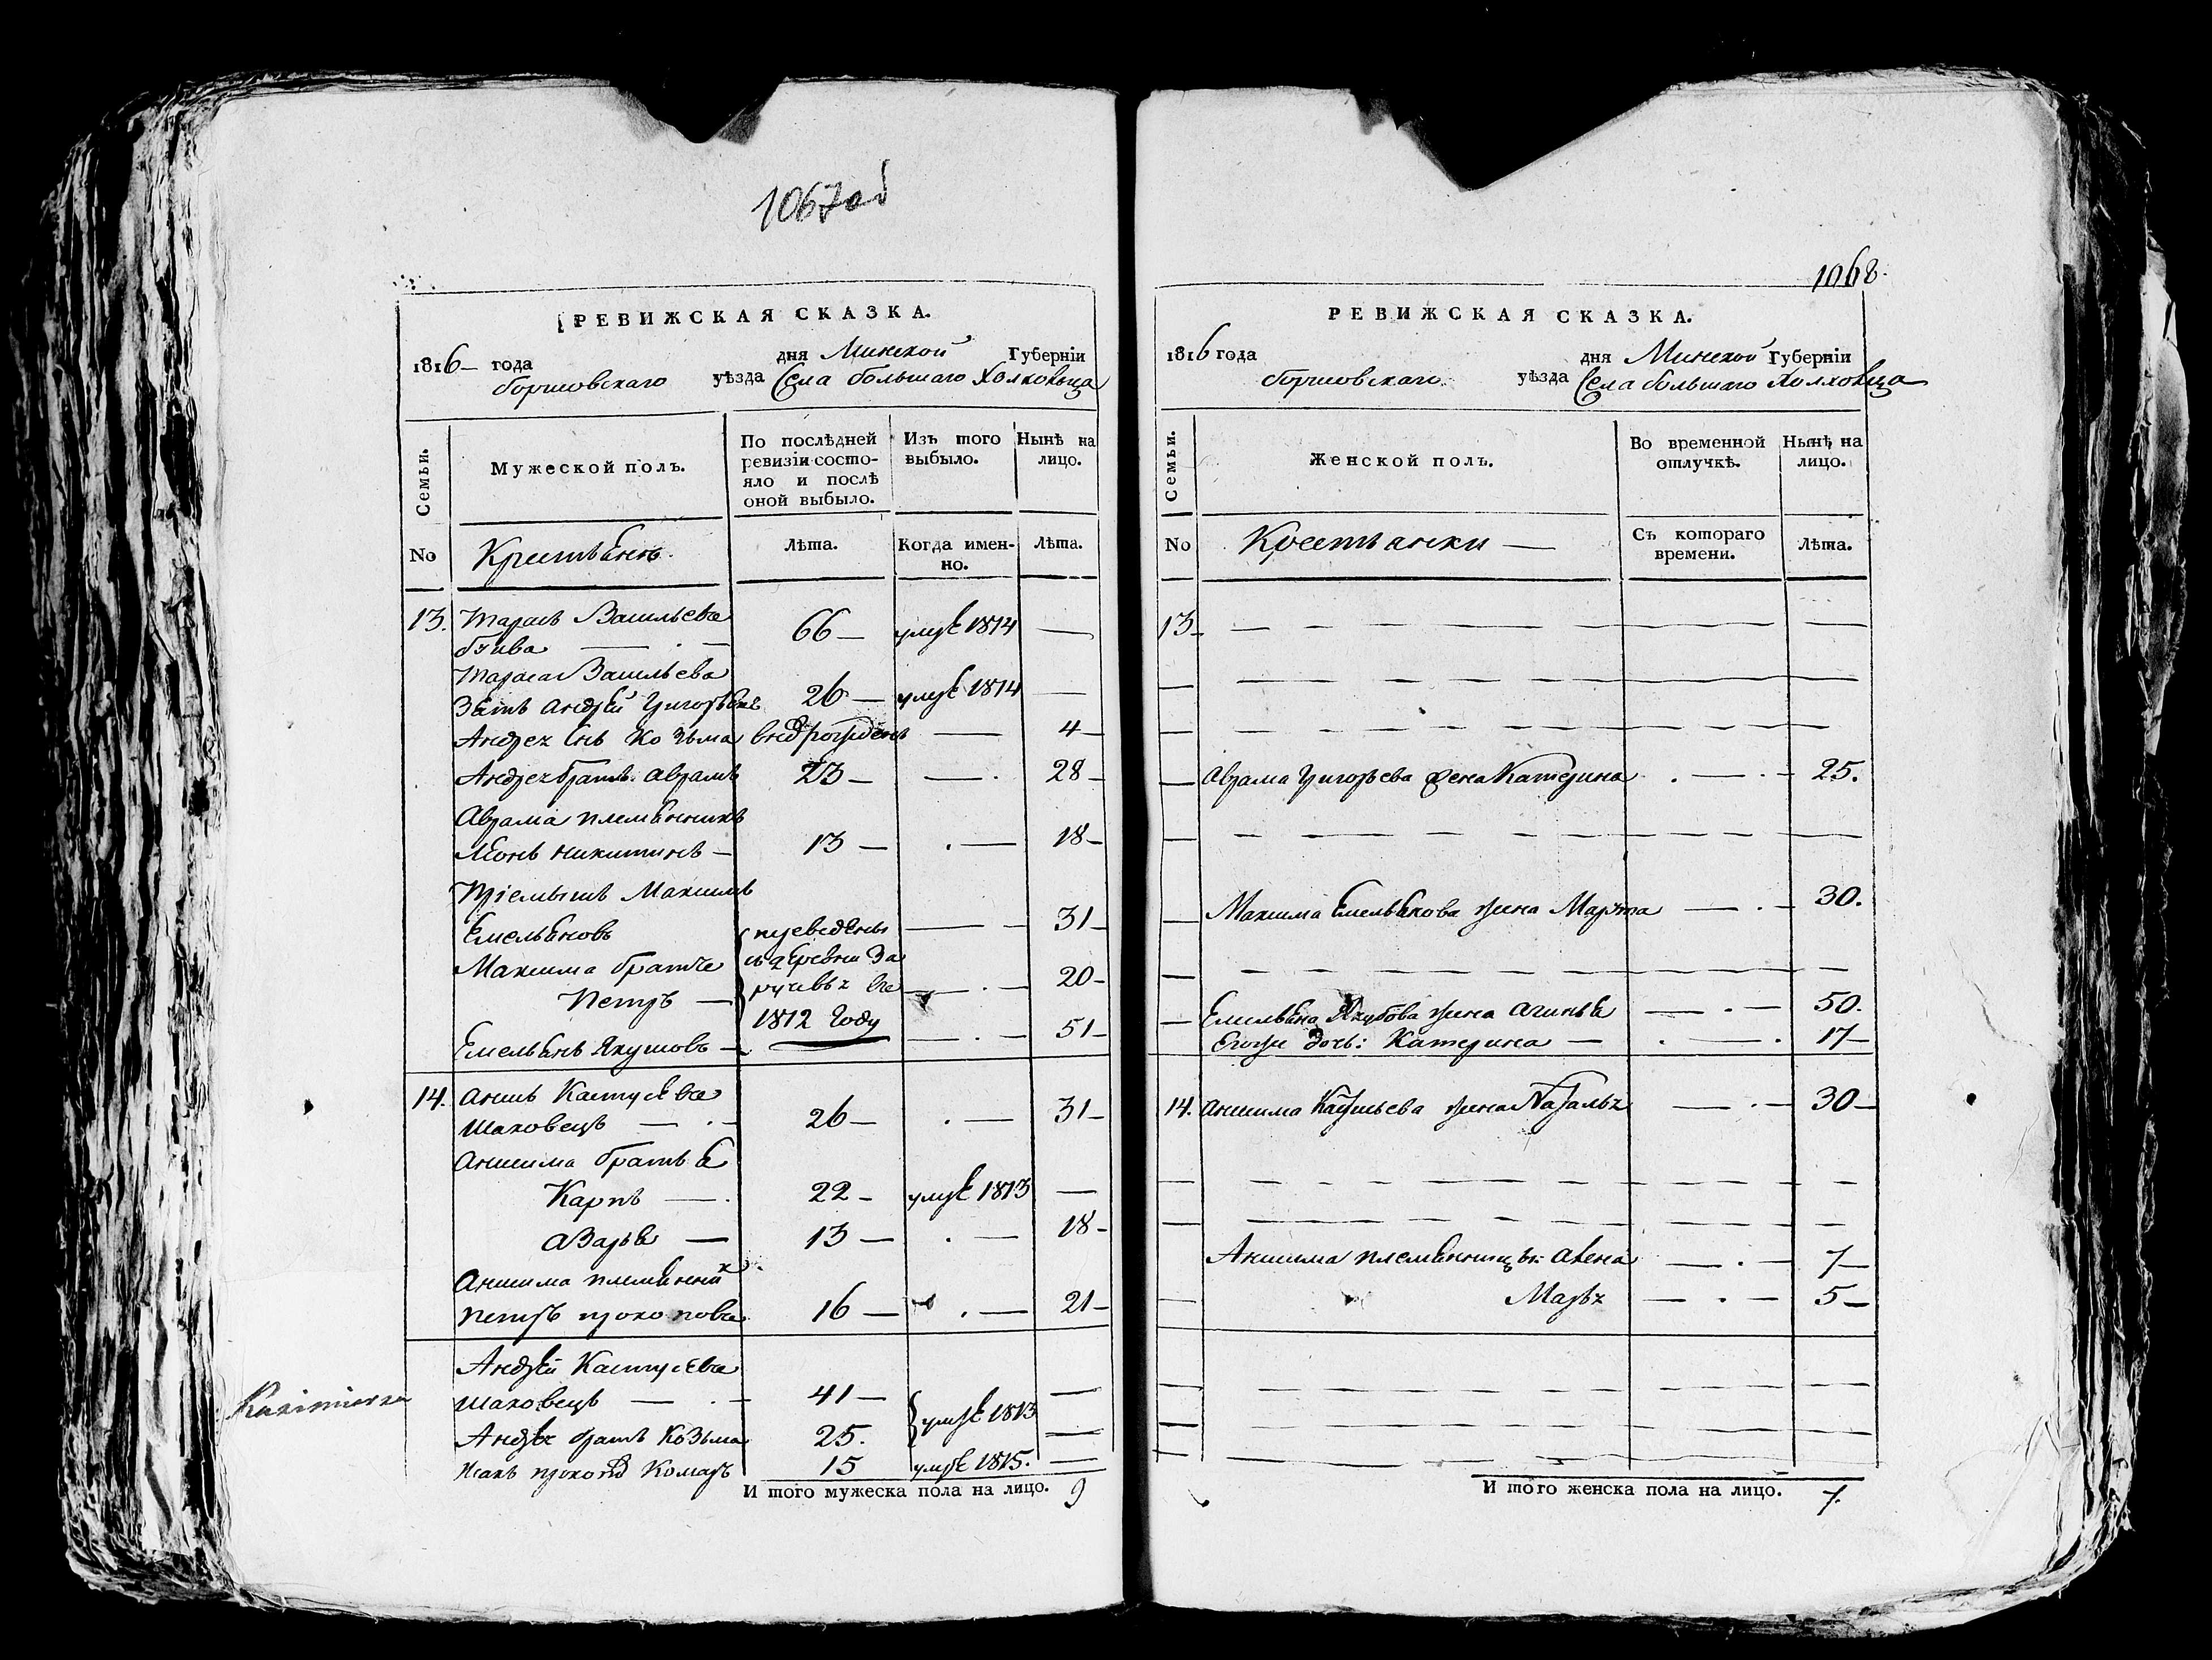 1067 об
РЕВИЖСКАЯ СКАЗКА.
1816 года дня Минской Губерніи
борисовскаго уѣзда Села большаго Холховца
Семьи.
Мужеской полъ.
По послѣдней ревизіи состо-
яло и послѣ
оной выбыло.
Изъ того
выбыло.
Нынѣ на
лицо.
No
Крестьяне
Лѣта.
Когда имен-
но.
Лѣта.
13. Тарасъ Васильевъ
66 — умре 1814 —
Тараса Васильева
Зять Андрей Григорьевъ 26 — умре 1814 —
Андрея Снъ Козьма — 4 —
Андрея братъ Аврамъ 23 — — 28 —
Аврама племянникъ
Леонъ Никитинъ — 13 — — 18 —
Пріемышъ Максимъ
Емельяновъ переведены — 31 —
Максима братъ изъ деревни За
Петръ — — 20 —
1812 Году
Емельянъ Якушовъ — 51 —
14. Анисимъ Кастусевъ
Шаховецъ — 26 — — 31 —
Анисима братья
Карпъ — 22 — умре 1813 —
Азарья — 13 — — 18 —
Анисима племянникъ
Петръ Прокоповъ 16 — — 21 —
Kazimierza
Андрей Кастусевъ
Шаховецъ — 41 — умре 1813 —
Андрея братъ Козьма 25. —
Комаръ 15 умре 1815. —
И того мужеска пола на лицо. 9
1068.
РЕВИЖСКАЯ СКАЗКА.
1816 года дня Минской Губерніи
борисовскаго уѣзда Села большаго Холховца
Семьи.
Женской полъ.
Во временной
отлучкѣ.
Нынѣ на
лицо.
No
Крестьянки —
Съ котораго
времени.
Лѣта.
13
Аврама Григорьева жена Катерина — 25.
Максима Емельянова жена Марта — 30.
Емельяна Якубова жена Агинья — 50.
Егожъ дочь: Катерина — 17 —
14. Анисима Кастусьева жена Наталья — 30 —
Анисима племянницы: Алена — 7 —
Марья — 5 —
И того женска пола на лицо. 7.